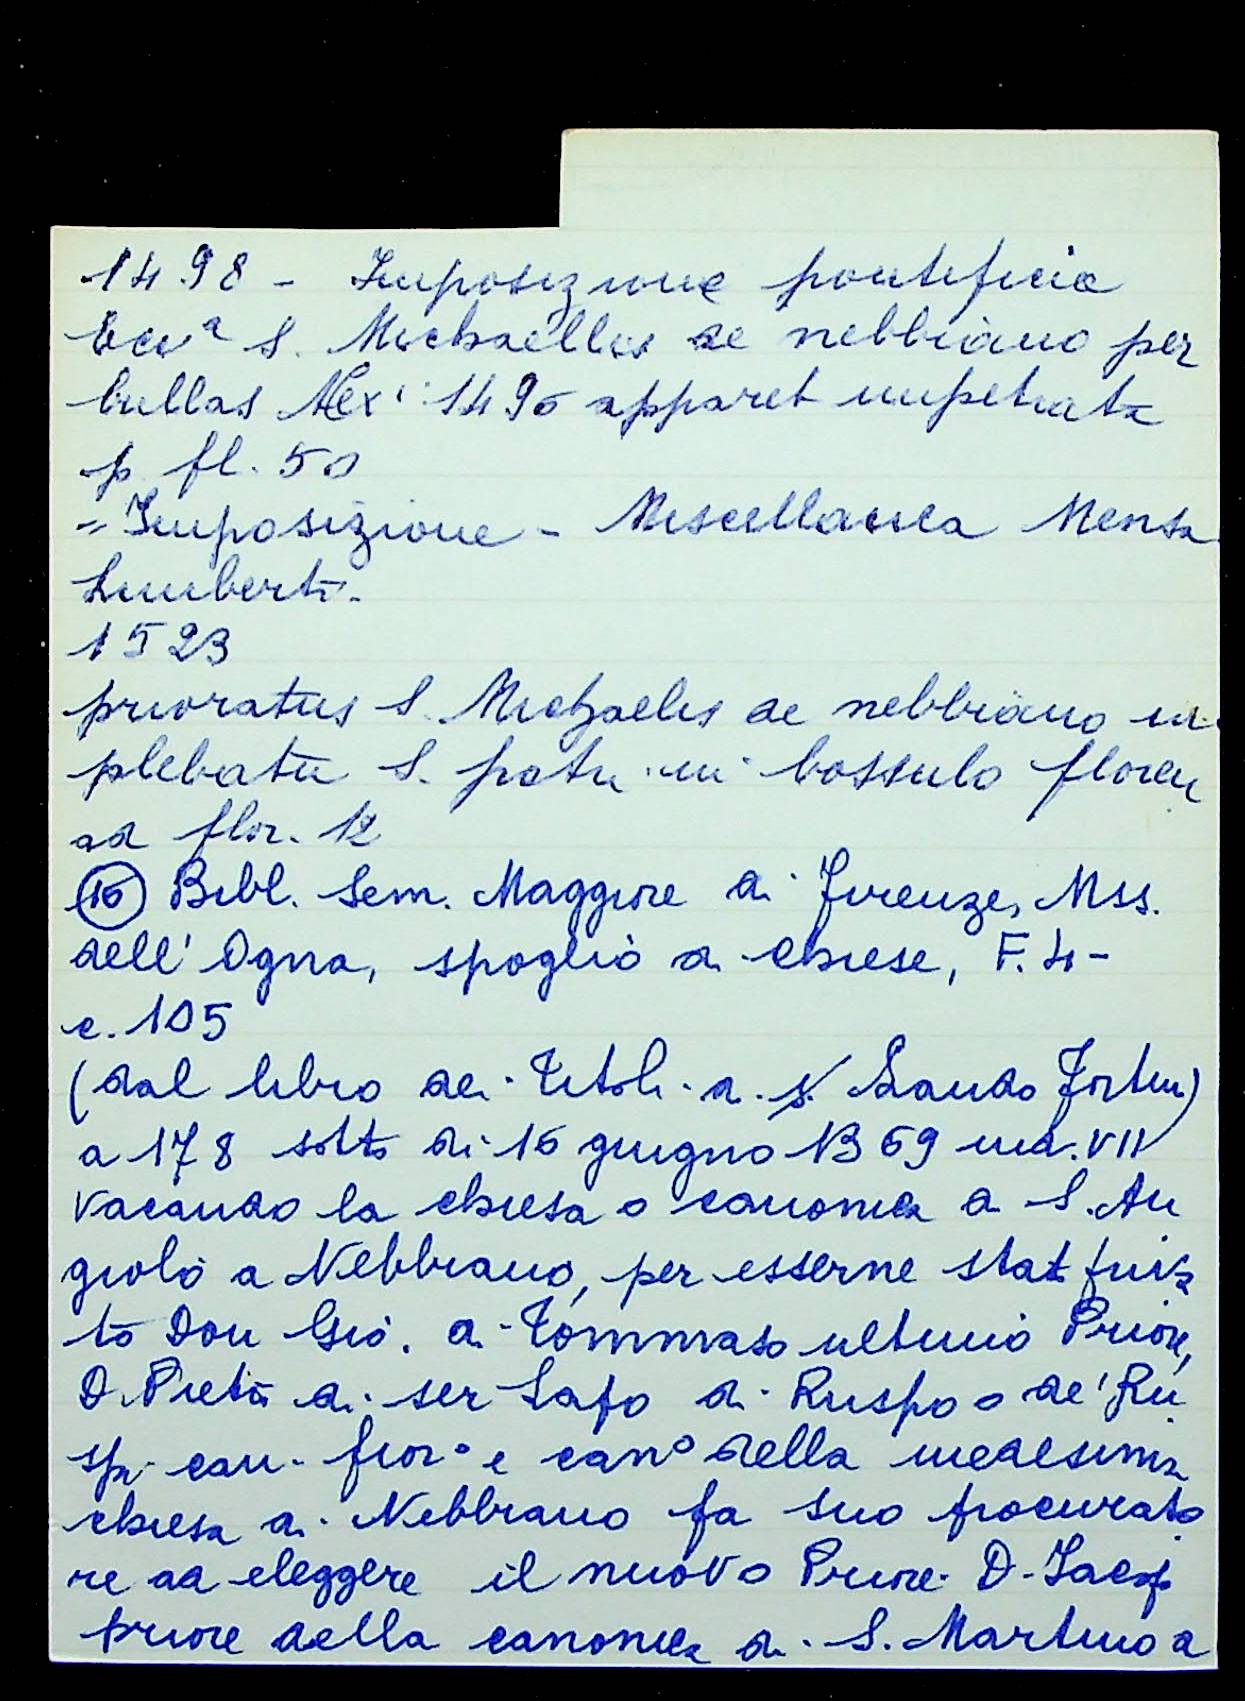 1498 - Imposizione pontificia
Ecca S. Michaellis de nebbiano per
bullas Alexi 1496 apparet impetrata
p. fl. 50
" Imposizione - Miscellanea Mensa
1523
prioratus S. Michaelis de nebbiano in
plebatu S. petri in bossulo floren
ad flor. 12
(16) Bibl. Sem. Maggiore di Firenze, Mss.
dell'Ogna, spoglio di chiese, F. 4 -
c. 105
(dal libro dei Titoli di S. Lando Fortini)
a 178 sotto di 16 giugno 1369 ind. VII
vacando la chiesa o canonica di S. An
giolo a Nebbiano, per esserne stat
to Don Gio. di Tommaso ultimo Priore,
D. Pietro di ser Lapo di Ruspo o de' Ru
spi can. fior.o e cano della medesima
chiesa di Nebbiano fa suo procurato
re ad eleggere il nuovo Priore D. Iacop
priore della canonica di S. Martino a